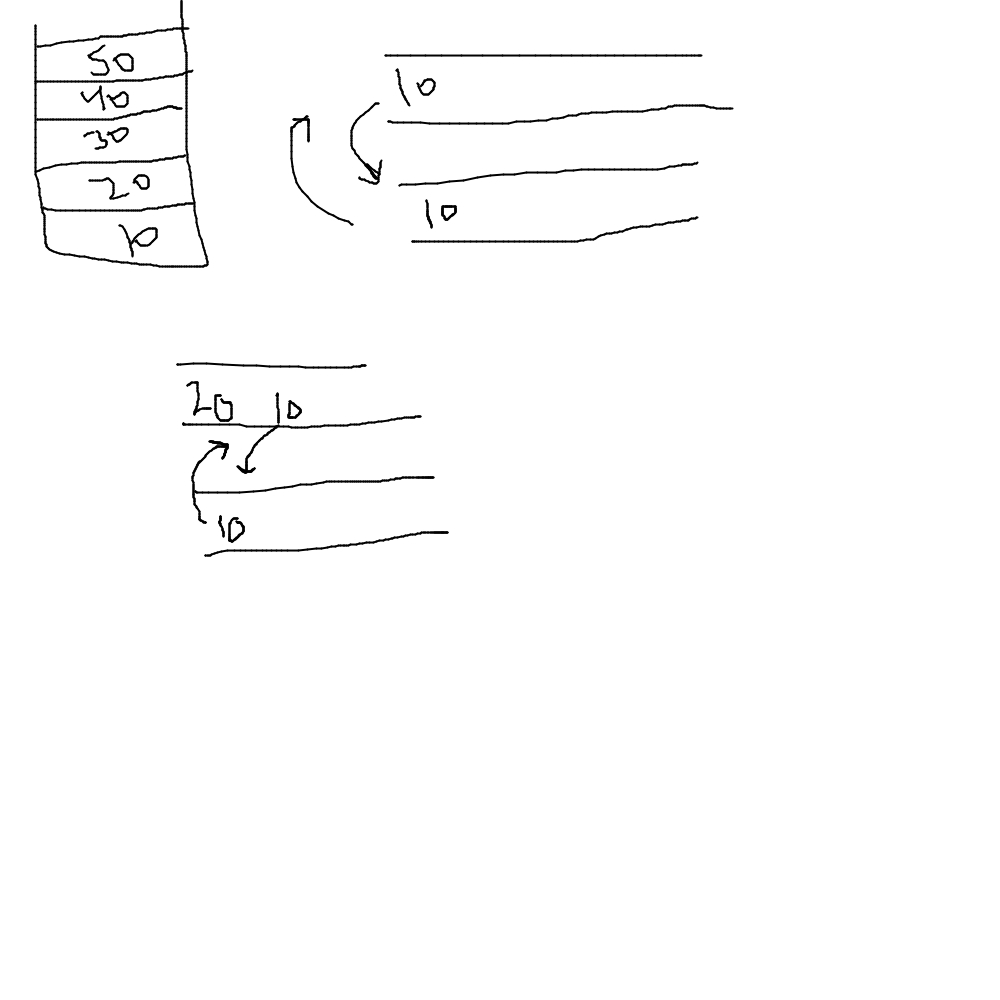 50
40
30
20
10
10
10
20 10
10